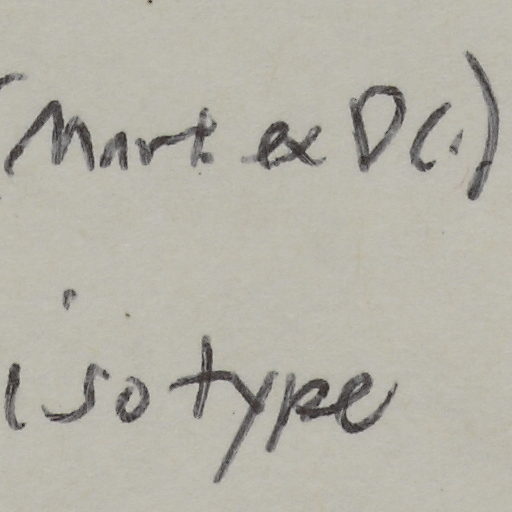 (Mart ex DC.)
isotype